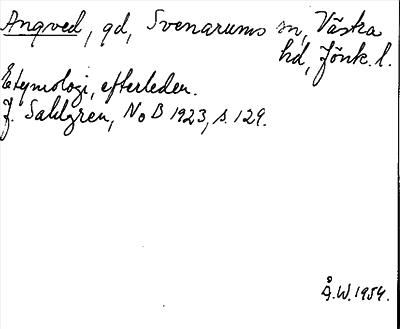 Angved, gd, Svenarums sn, Västra
hd, Jönk. l.
Etymologi, efterleden.
J. Sahlgren, NoB 1923, s. 129.
Å.W. 1954.